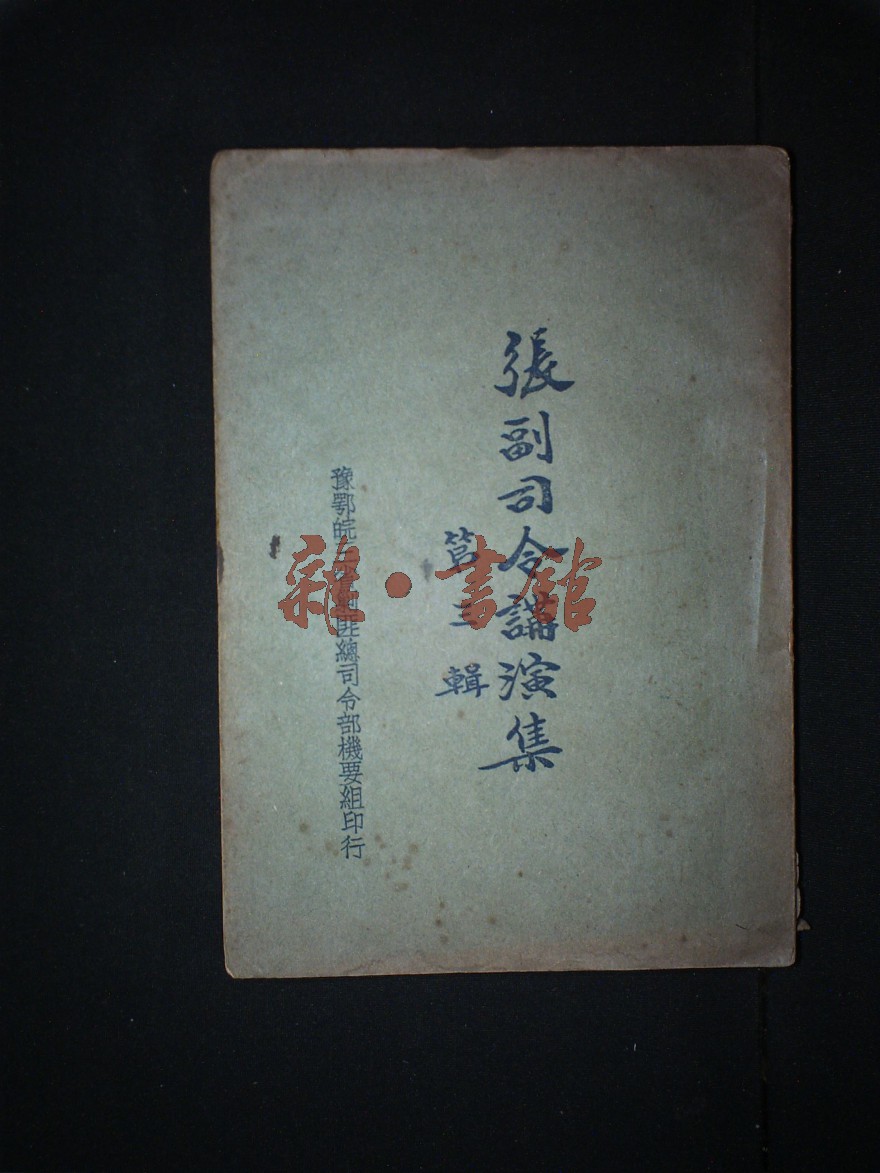 張副司令講演集
第三輯
豫鄂皖三省剿匪總司令部機要組印行
雜·書館